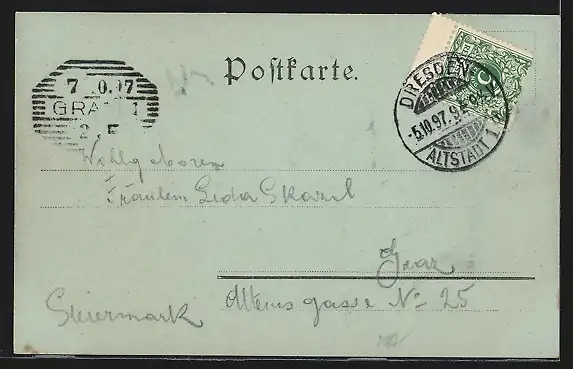 Postkarte.
7 10.97
GRAZ 1
DRESDEN-
-5.10.97.
ALTSTADT 1.
5
Wohlgeboren
Fräulein Leda Skazil
Graz
Attemsgasse No 25
Steiermark